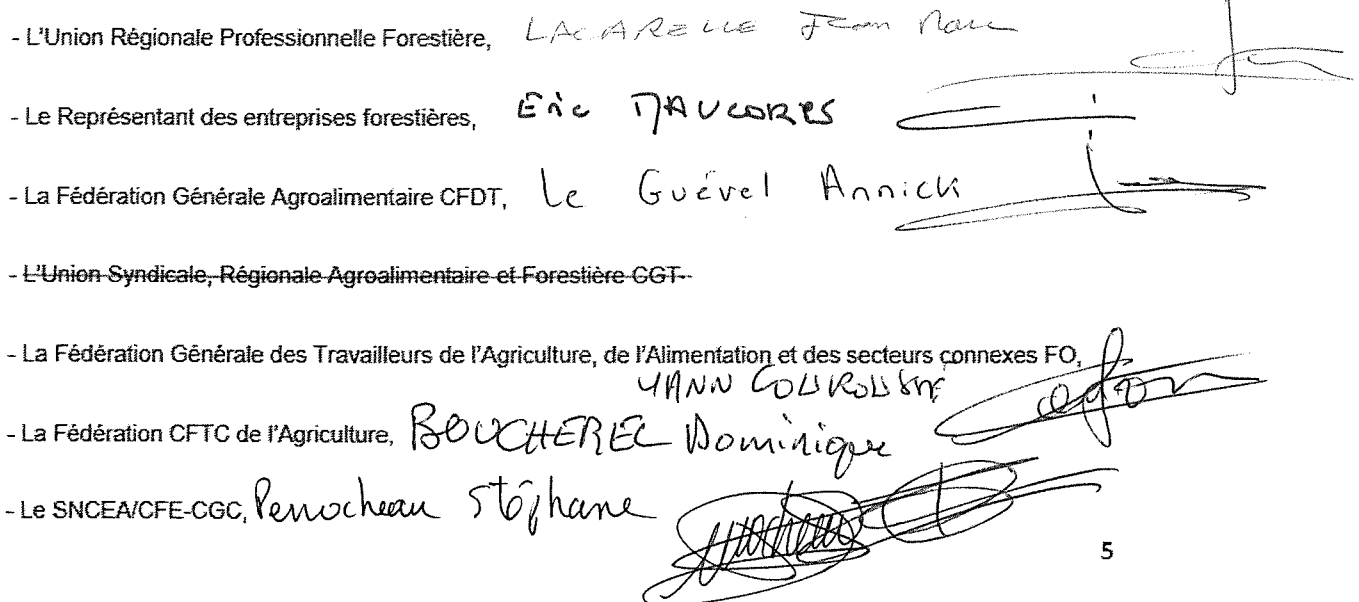 - L'Union Régionale Professionnelle Forestière, LACARELLE Jean Marc
- Le Représentant des entreprises forestières, Eric MAUCORPS
- La Fédération Générale Agroalimentaire CFDT, Le Guével Annick
- L'Union Syndicale, Régionale Agroalimentaire et Forestière CGT
- La Fédération Générale des Travailleurs de l'Agriculture, de l'Alimentation et des secteurs connexes FO,
YANN
- La Fédération CFTC de l'Agriculture, BOUCHEREL Dominique
- Le SNCEA/CFE-CGC, Perrocheau Stéphane
5